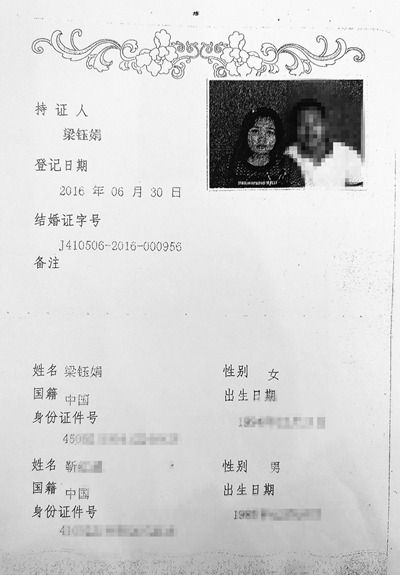 持证人
梁钰娟
登记日期
2016 年 06 月 30 日
结婚证字号
J410506-2016-000956
备注
姓名 梁钰娟 性别 女
国籍 中国 出生日期
身份证件号 199
450
姓名 靳 性别 男
国籍 中国 出生日期
身份证件号 198
410